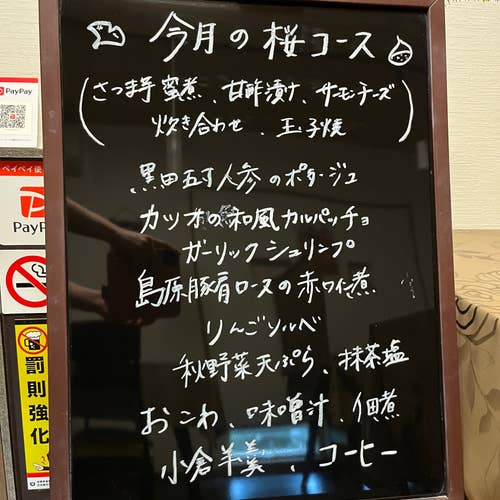 今月の桜コース
(さつま芋蜜煮、甘酢漬け、サーモンチーズ
炊き合わせ、玉子焼)
黒田五寸人参のポタージュ
カツオの和風カルパッチョ
ガーリックシュリンプ
島原豚肩ロースの赤ワイン煮
りんごソルベ
秋野菜天ぷら、抹茶塩
おこわ、味噌汁、佃煮
小倉羊羹、コーヒー
PayPay
ペイペイ使
PayP
罰則強化